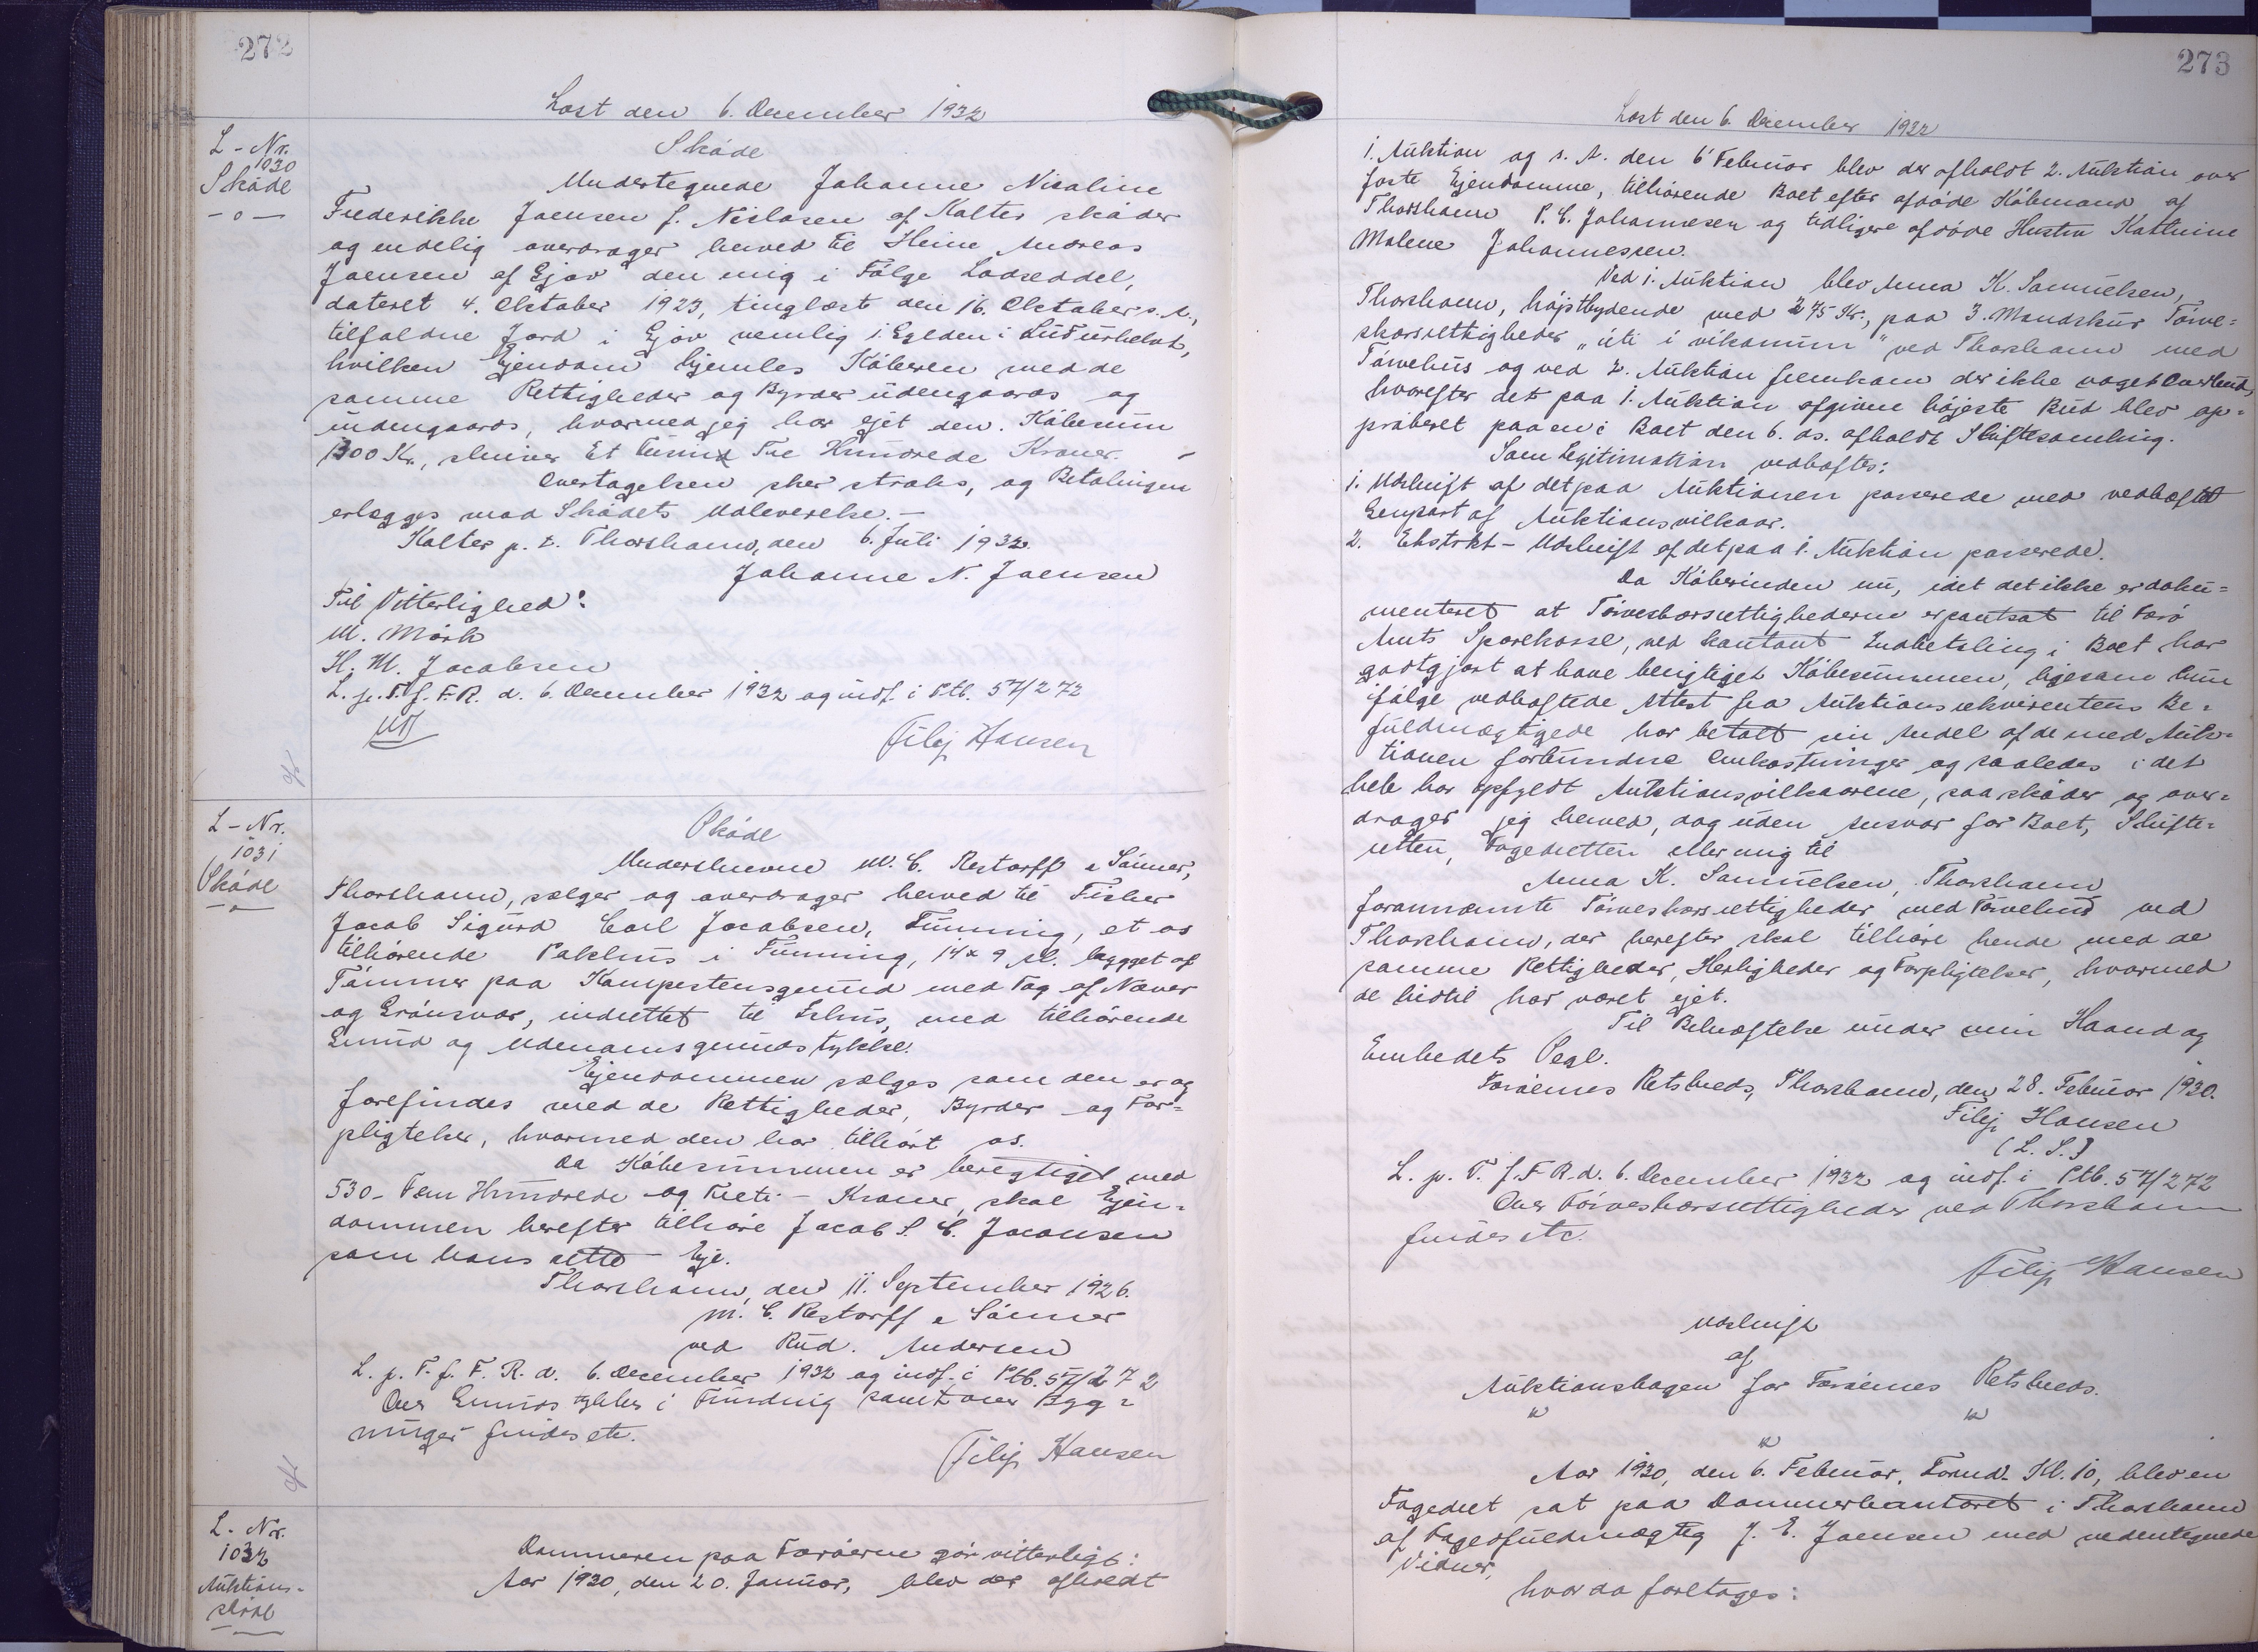 272
Læst den 6. December 1932
L-Nr.
1030
Skøde
-o-
Skøde
Undertegnede Johanne Nicoline
Frederikke Joensen f. Niclasen af Kolter skøder
og endelig overdrager herved til Heine Andreas
Joensen af Gjov den mig i Følge Lodseddel,
dateret 4. Oktober 1923, tinglæst den 16. Oktober s. A.,
tilfaldne Jord i Gjov nemlig i
hvilken Ejendom hjemles Køberen med de
samme Rettigheder og Byrder udengaards og
indengaards, hvormed jeg har ejet den. Købesum
1300 Kr., skriver Et Tusind Tre Hundrede Kroner.
Overtagelsen sker straks, og Betalingen
erlægges mod Skødets Udleverelse.-
Kolter p. t. Thorshavn, den 6. Juli 1932.
Johanne N. Joensen
Til Vitterlighed:
M. Mørk
H. M. Jacobsen
L. p. T. f. F. R. d. 6. December 1932 og indf. i Ptb. 57/272
Filip Hansen
L-Nr.
1031
Skøde
-o-
Skøde
Underskrevne M. C. Restorff & Sønner,
Thorshavn, sælger og overdrager herved til Fisker
Jacob Sigurd Carl Jacobsen, Funning, et os
tilhørende Pakhus i Funning, 14 x 9 Al. bygget af
Tømmer paa Kampestensgrund med Tag af Næver
og Grønsvær, indrettet til Ishus, med tilhørende
Grund og Udenomsgrundstykke.
Ejendommen sælges som den er og
forefindes med de Rettigheder, Byrder og For=
pligtelser, hvormed den har tilhørt os.
Da Købesummen er berigtiget med
530 - Fem Hundrede og Treti - Kroner, skal Ejen=
dommen herefter tilhøre Jacob S. C. Jacobsen
som hans rette Eje.
Thorshavn, den 11. September 1926.
M. C. Restorff & Sønner
ved Rud. Andersen
L. p. T. f. F. R. d. 6. December 1932 og indf. i Ptb. 57/272
Over Grundstykker i Funding samt over Byg=
ninger findes etc.
Filip Hansen
L-Nr.
1032
Auktions-
skøde
Dommeren paa Færøerne gør vitterligt:
Aar 1930, den 20. Januar, blev der afholdt
273
Læst den 6. December 1932
1. Auktion og s. A. den 6' Februar blev der afholdt 2. Auktion over
faste Ejendomme, tilhørende Boet efter afdøde Købmand af
Thorshavn P. C. Johannesen og tidligere afdøde Hustru Kathrine
Malene Johannessen.
Ved 1. Auktion blev Anna K. Samuelsen,
Thorshavn, højstbydende med 275 Kr., paa 3. Mandskur Tørve=
skærsrettigheder "úti í vikunum" ved Thorshavn med
Tørvehus og ved 2. Auktion fremkom der ikke noget Overbud,
hvorefter det paa 1. Auktion afgivne højeste Bud blev ap=
proberet paa en i Boet den 6. ds. afholdt Skiftesamling.
Som Legitimation vedhæftes:
1. Udskrift af det paa Auktionen passerede med vedhæftet
Genpart af Auktionsvilkaar.
2. Ekstrkt-Udskrift af det paa 1. Auktion passerede.
Da Køberinden nu, idet det ikke er doku=
menteret at Tørveskærsrettighederne er pantsat til Færø
Amts Sparekasse, ved kontant Indbetaling i Boet har
godtgjort at have berigtiget Købesummen, ligesom hun
ifølge vedhæftede Attest fra Auktionsrekvirentens Be=
fuldmægtigede har betalt sin Andel af de med Auk=
tionen forbundne Omkostninger og saaledes i det
hele har opfyldt Auktionsvilkaarene, saa skøder og over=
drager jeg herved, dog uden Ansvar for Boet, Skifte=
retten, Fogedretten eller mig til
Anna K. Samuelsen, Thorshavn
forannævnte Tørveskærsrettigheder med Tørvehus ved
Thorshavn, der herefter skal tilhøre hende med de
samme Rettigheder, Herligheder og Forpligtelser, hvormed
de hidtil har været ejet.
Til Bekræftelse under min Haand og
Embedets Segl.
Færøernes Retskreds, Thorshavn, den 28. Februar 1930.
Filip Hansen
(L. S.)
L. p. T. f. F R. d. 6. December 1932 og indf. i Ptb. 57/272
Over Tørveskærsrettigheder ved Thorshavn
findes etc.
Filip Hansen
Udskrift
af
Auktionsbogen for Færøernes Retskreds.
Aar 1930, den 6. Februar, Formd. Kl. 10, blev en
Fogedret sat paa Dommerkontoret i Thorshavn
af Fogedfuldmægtig J. E. Joensen med undertegnede
Vidner,
hvor da foretoges: